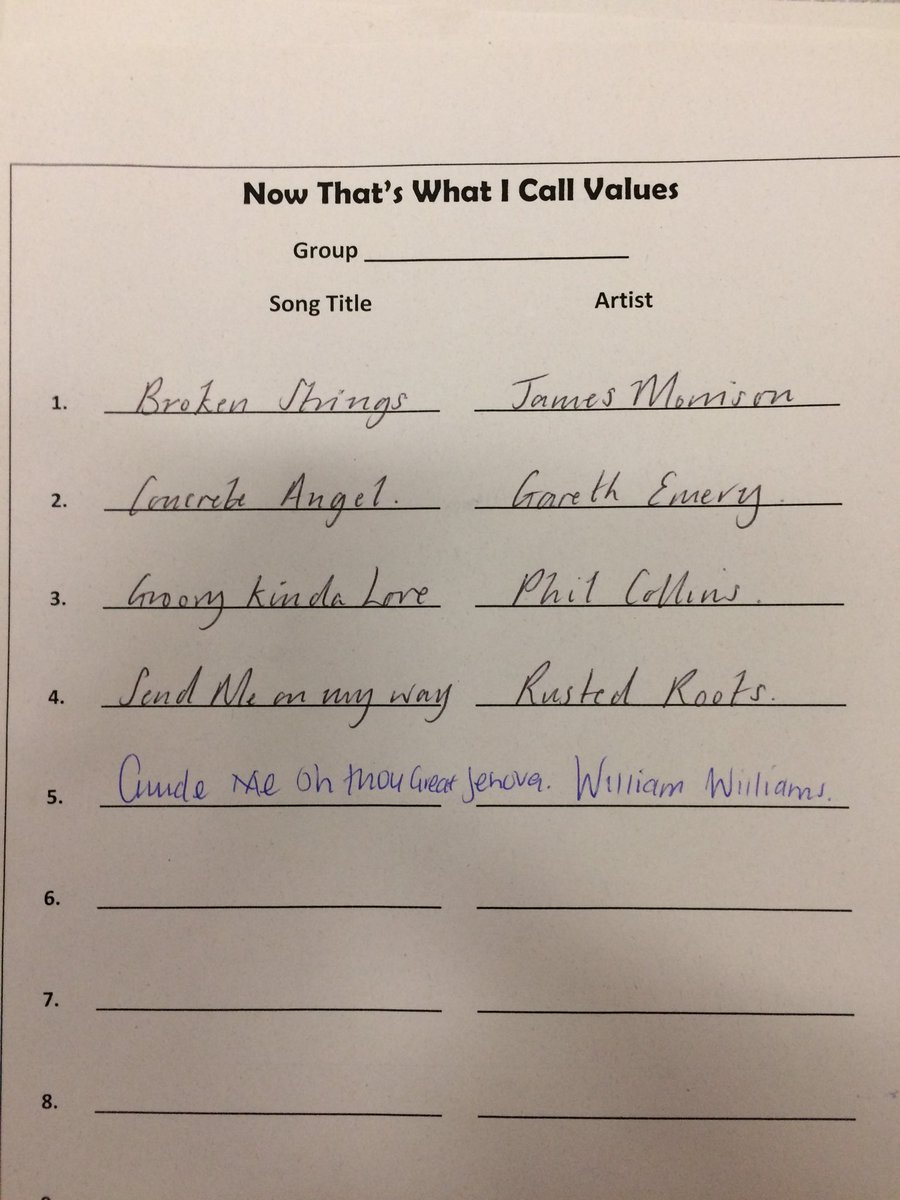 Now That's What I Call Values
Group
Song Title Artist
1. Broken Strings James Morrison
2. Concrete Angel. Gareth Emery.
3. Groovy Kinda Love Phil Collins.
4. Send Me on my way Rusted Roots.
5. Guide Me Oh thou Great Jehova. William Williams.
6.
7.
8.